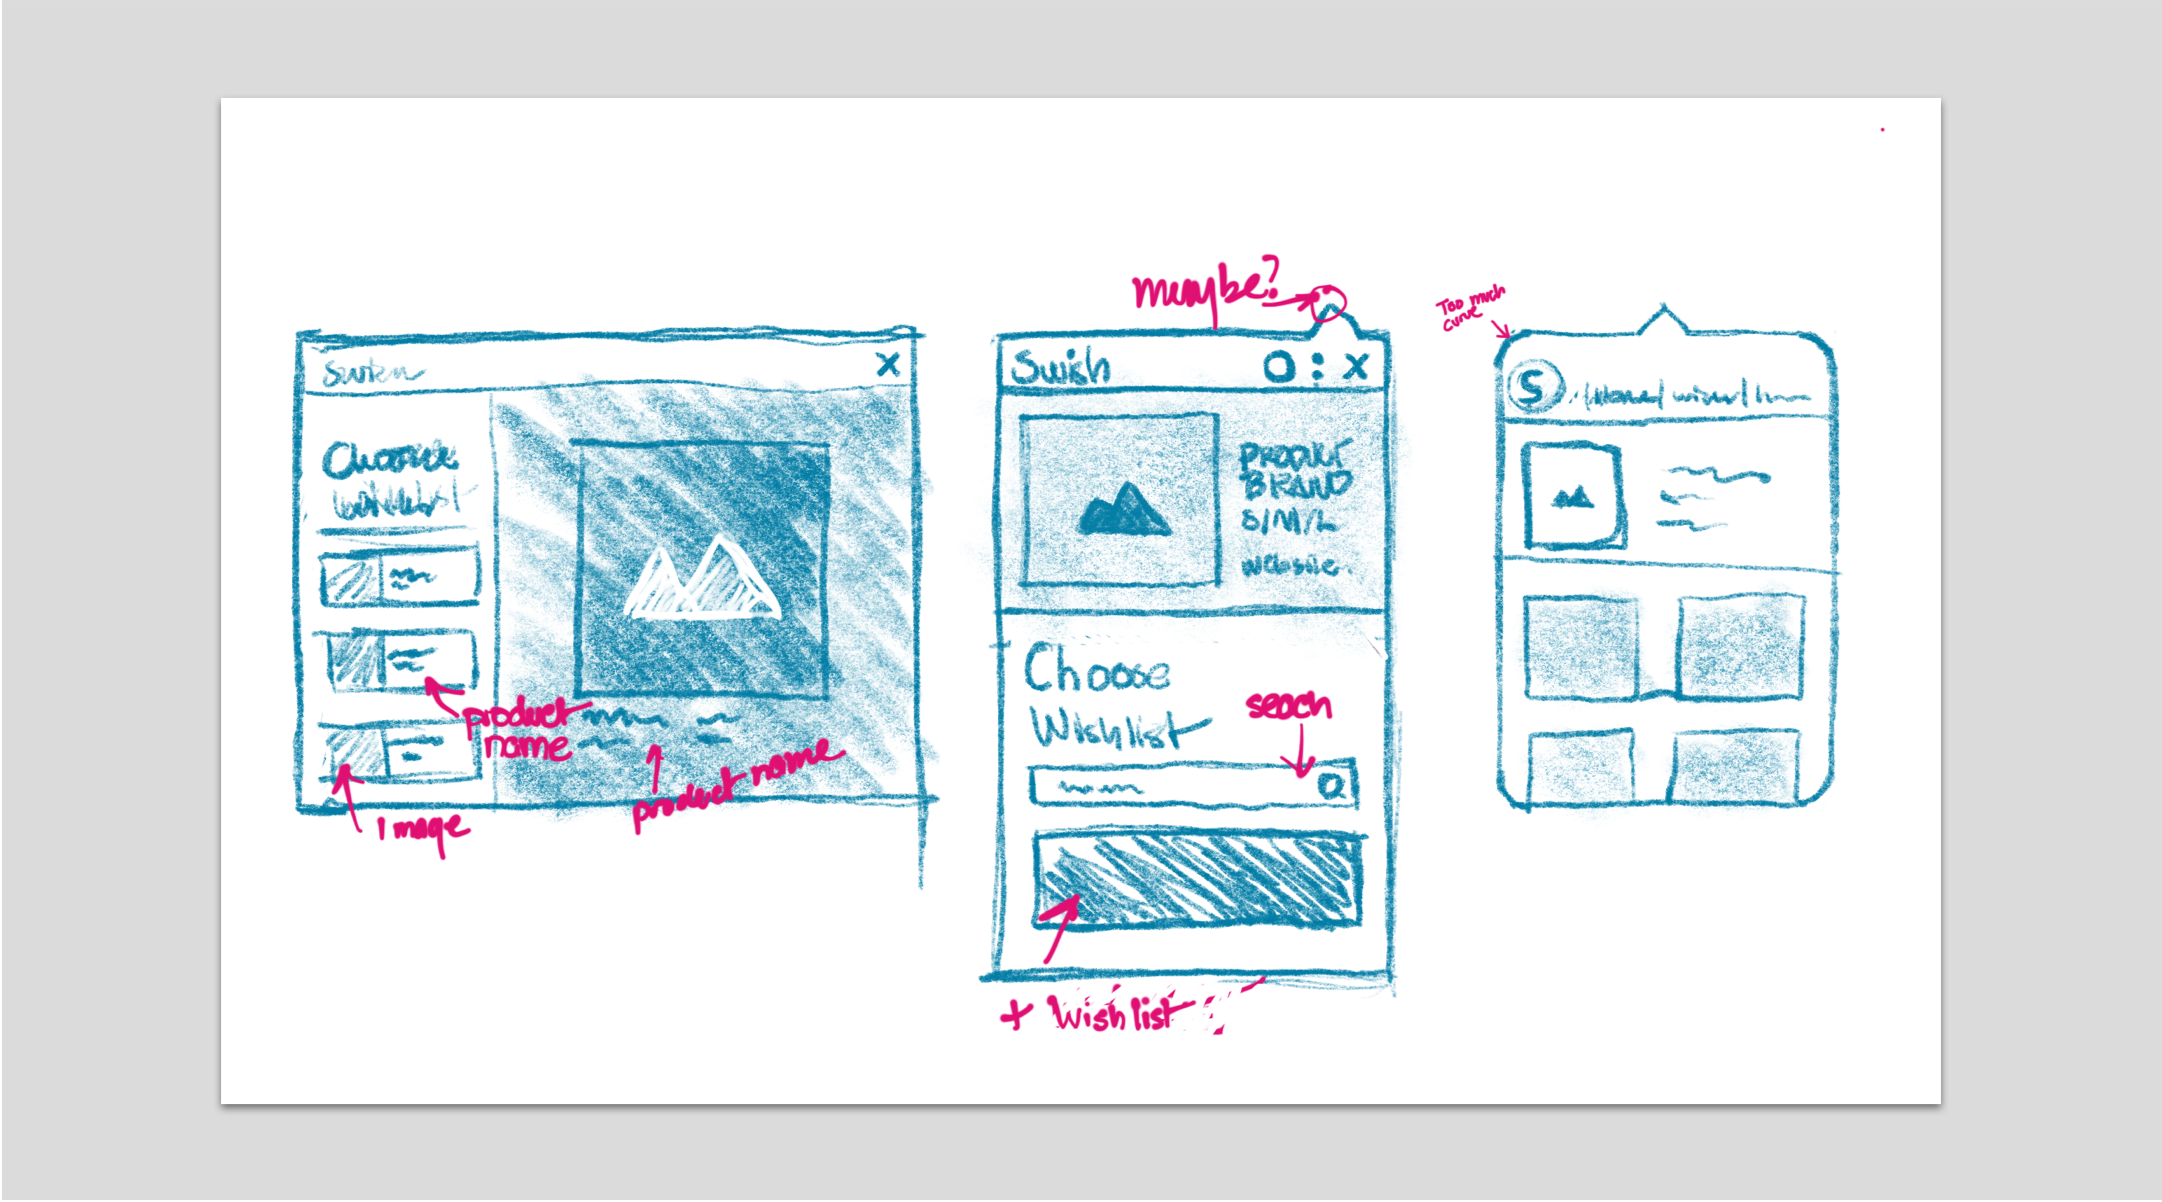 x
Choose
wishlist
product
name
Image
product name
maybe?
Swish
x
PRODUCT
BRAND
S/M/L
website.
Choose
Wishlist
seach
+ Wishlist
Too much
curve
S
/Home/